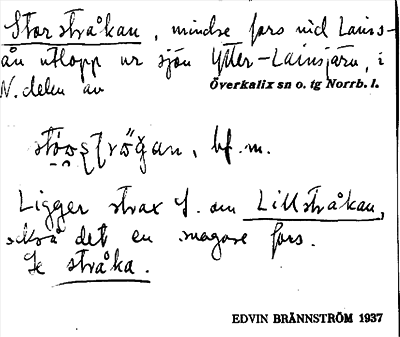 Storstråkan, mindre fors vid Lains-
ån utlopp ur sjön Ytter-Lainsjärv, i
N. delen av Överkalix sn o. tg Norrb. l.
bf. m.
Ligger strax S. om Lillstråkan,
också det en mager fors.
Se stråka.
EDVIN BRÄNNSTRÖM 1937